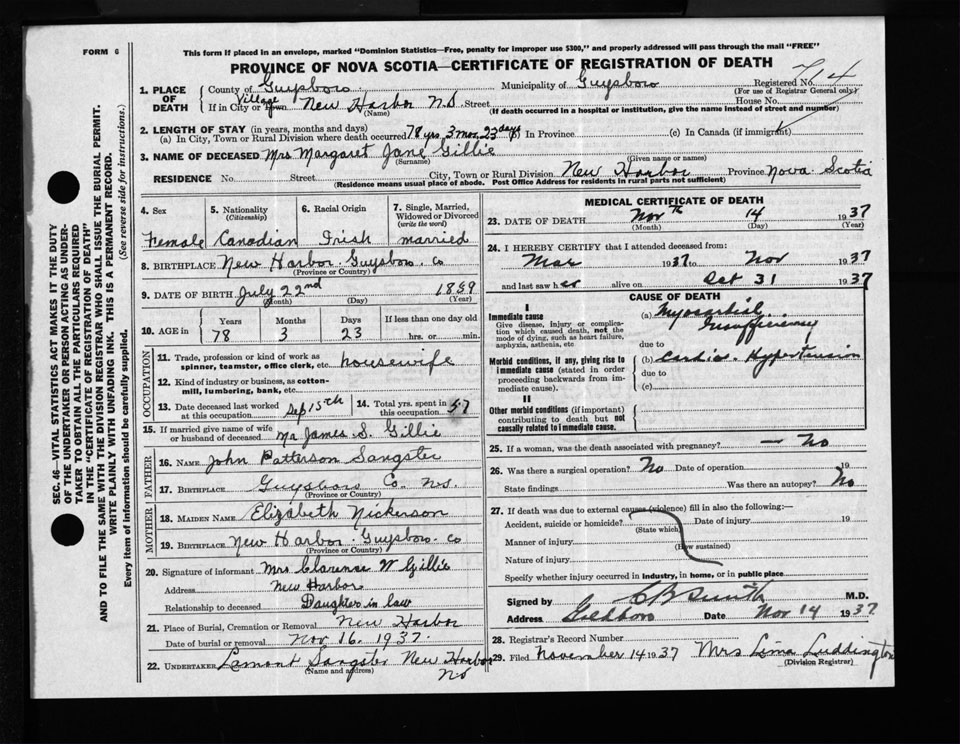 FORM 6
This form if placed in an envelope, marked "Dominion Statistics—Free, penalty for improper use $300," and properly addressed will pass through the mail "FREE"
PROVINCE OF NOVA SCOTIA—CERTIFICATE OF REGISTRATION OF DEATH
SEC. 46—VITAL STATISTICS ACT MAKES IT THE DUTY
OF THE UNDERTAKER OR PERSON ACTING AS UNDER-
TAKER TO OBTAIN ALL THE PARTICULARS REQUIRED
IN THE "CERTIFICATE OF REGISTRATION OF DEATH"
AND TO FILE THE SAME WITH THE DIVISION REGISTRAR WHO SHALL ISSUE THE BURIAL PERMIT.
WRITE PLAINLY WITH UNFADING INK. THIS IS A PERMANENT RECORD.
Every item of information should be carefully supplied. (See reverse side for instructions.)
1. PLACE OF DEATH
County of Guysboro Municipality of Guysboro Registered No. 714
(For use of Registrar General only)
Village
If in City or Town New Harbor N.S. Street House No.
(Name) (If death occurred in a hospital or institution, give the name instead of street and number)
2. LENGTH OF STAY (in years, months and days)
(a) In City, Town or Rural Division where death occurred 78 yrs 3 mos 23 days (b) In Province (c) In Canada (if immigrant)
3. NAME OF DECEASED Mrs Margaret Jane Gillie
(Surname) (Given name or names)
RESIDENCE No. Street City, Town or Rural Division New Harbor Province Nova Scotia
(Residence means usual place of abode. Post Office Address for residents in rural parts not sufficient)
4. Sex Female
5. Nationality (Citizenship) Canadian
6. Racial Origin Irish
7. Single, Married, Widowed or Divorced (write the word) married
8. BIRTHPLACE New Harbor Guysboro Co
(Province or Country)
9. DATE OF BIRTH July 22nd 1859
(Month) (Day) (Year)
10. AGE in Years Months Days If less than one day old
78 3 23 hrs. or min.
OCCUPATION
11. Trade, profession or kind of work as spinner, teamster, office clerk, etc. housewife
12. Kind of industry or business, as cotton-mill, lumbering, bank, etc.
13. Date deceased last worked at this occupation Sep 15th
14. Total yrs. spent in this occupation 57
15. If married give name of wife or husband of deceased Mr James S. Gillie
FATHER
16. NAME John Patterson Sangster
17. BIRTHPLACE Guysboro Co. N.S.
(Province or Country)
MOTHER
18. MAIDEN NAME Elizabeth Nickerson
19. BIRTHPLACE New Harbor Guysboro Co
(Province or Country)
20. Signature of informant Mrs Clarence W Gillie
Address New Harbor
Relationship to deceased Daughter in law
21. Place of Burial, Cremation or Removal New Harbor
Date of burial or removal Nov 16. 1937.
22. UNDERTAKER Lamont Sangster New Harbor NS
(Name and address)
MEDICAL CERTIFICATE OF DEATH
23. DATE OF DEATH Nov th 14 1937
(Month) (Day) (Year)
24. I HEREBY CERTIFY that I attended deceased from:
Mar 1937 to Nov 1937
and last saw her alive on Oct 31 1937
CAUSE OF DEATH
I
Immediate cause
Give disease, injury or complication which caused death, not the mode of dying, such as heart failure, asphyxia, asthenia, etc
(a) Myocardial Insufficiency
due to
Morbid conditions, if any, giving rise to immediate cause (stated in order proceeding backwards from immediate cause).
(b) Cardiac Hypertension
due to
(c)
II
Other morbid conditions (if important) contributing to death but not causally related to immediate cause.
25. If a woman, was the death associated with pregnancy? — No
26. Was there a surgical operation? No Date of operation 19
State findings Was there an autopsy? No
27. If death was due to external causes (violence) fill in also the following:—
Accident, suicide or homicide? Date of injury 19
(State which)
Manner of injury
(How sustained)
Nature of injury
Specify whether injury occurred in industry, in home, or in public place
Signed by C B Smith M.D.
Address Goldboro Date Nov 14 1937
28. Registrar's Record Number
29. Filed November 14 1937 Mrs Lima Luddington
(Division Registrar)